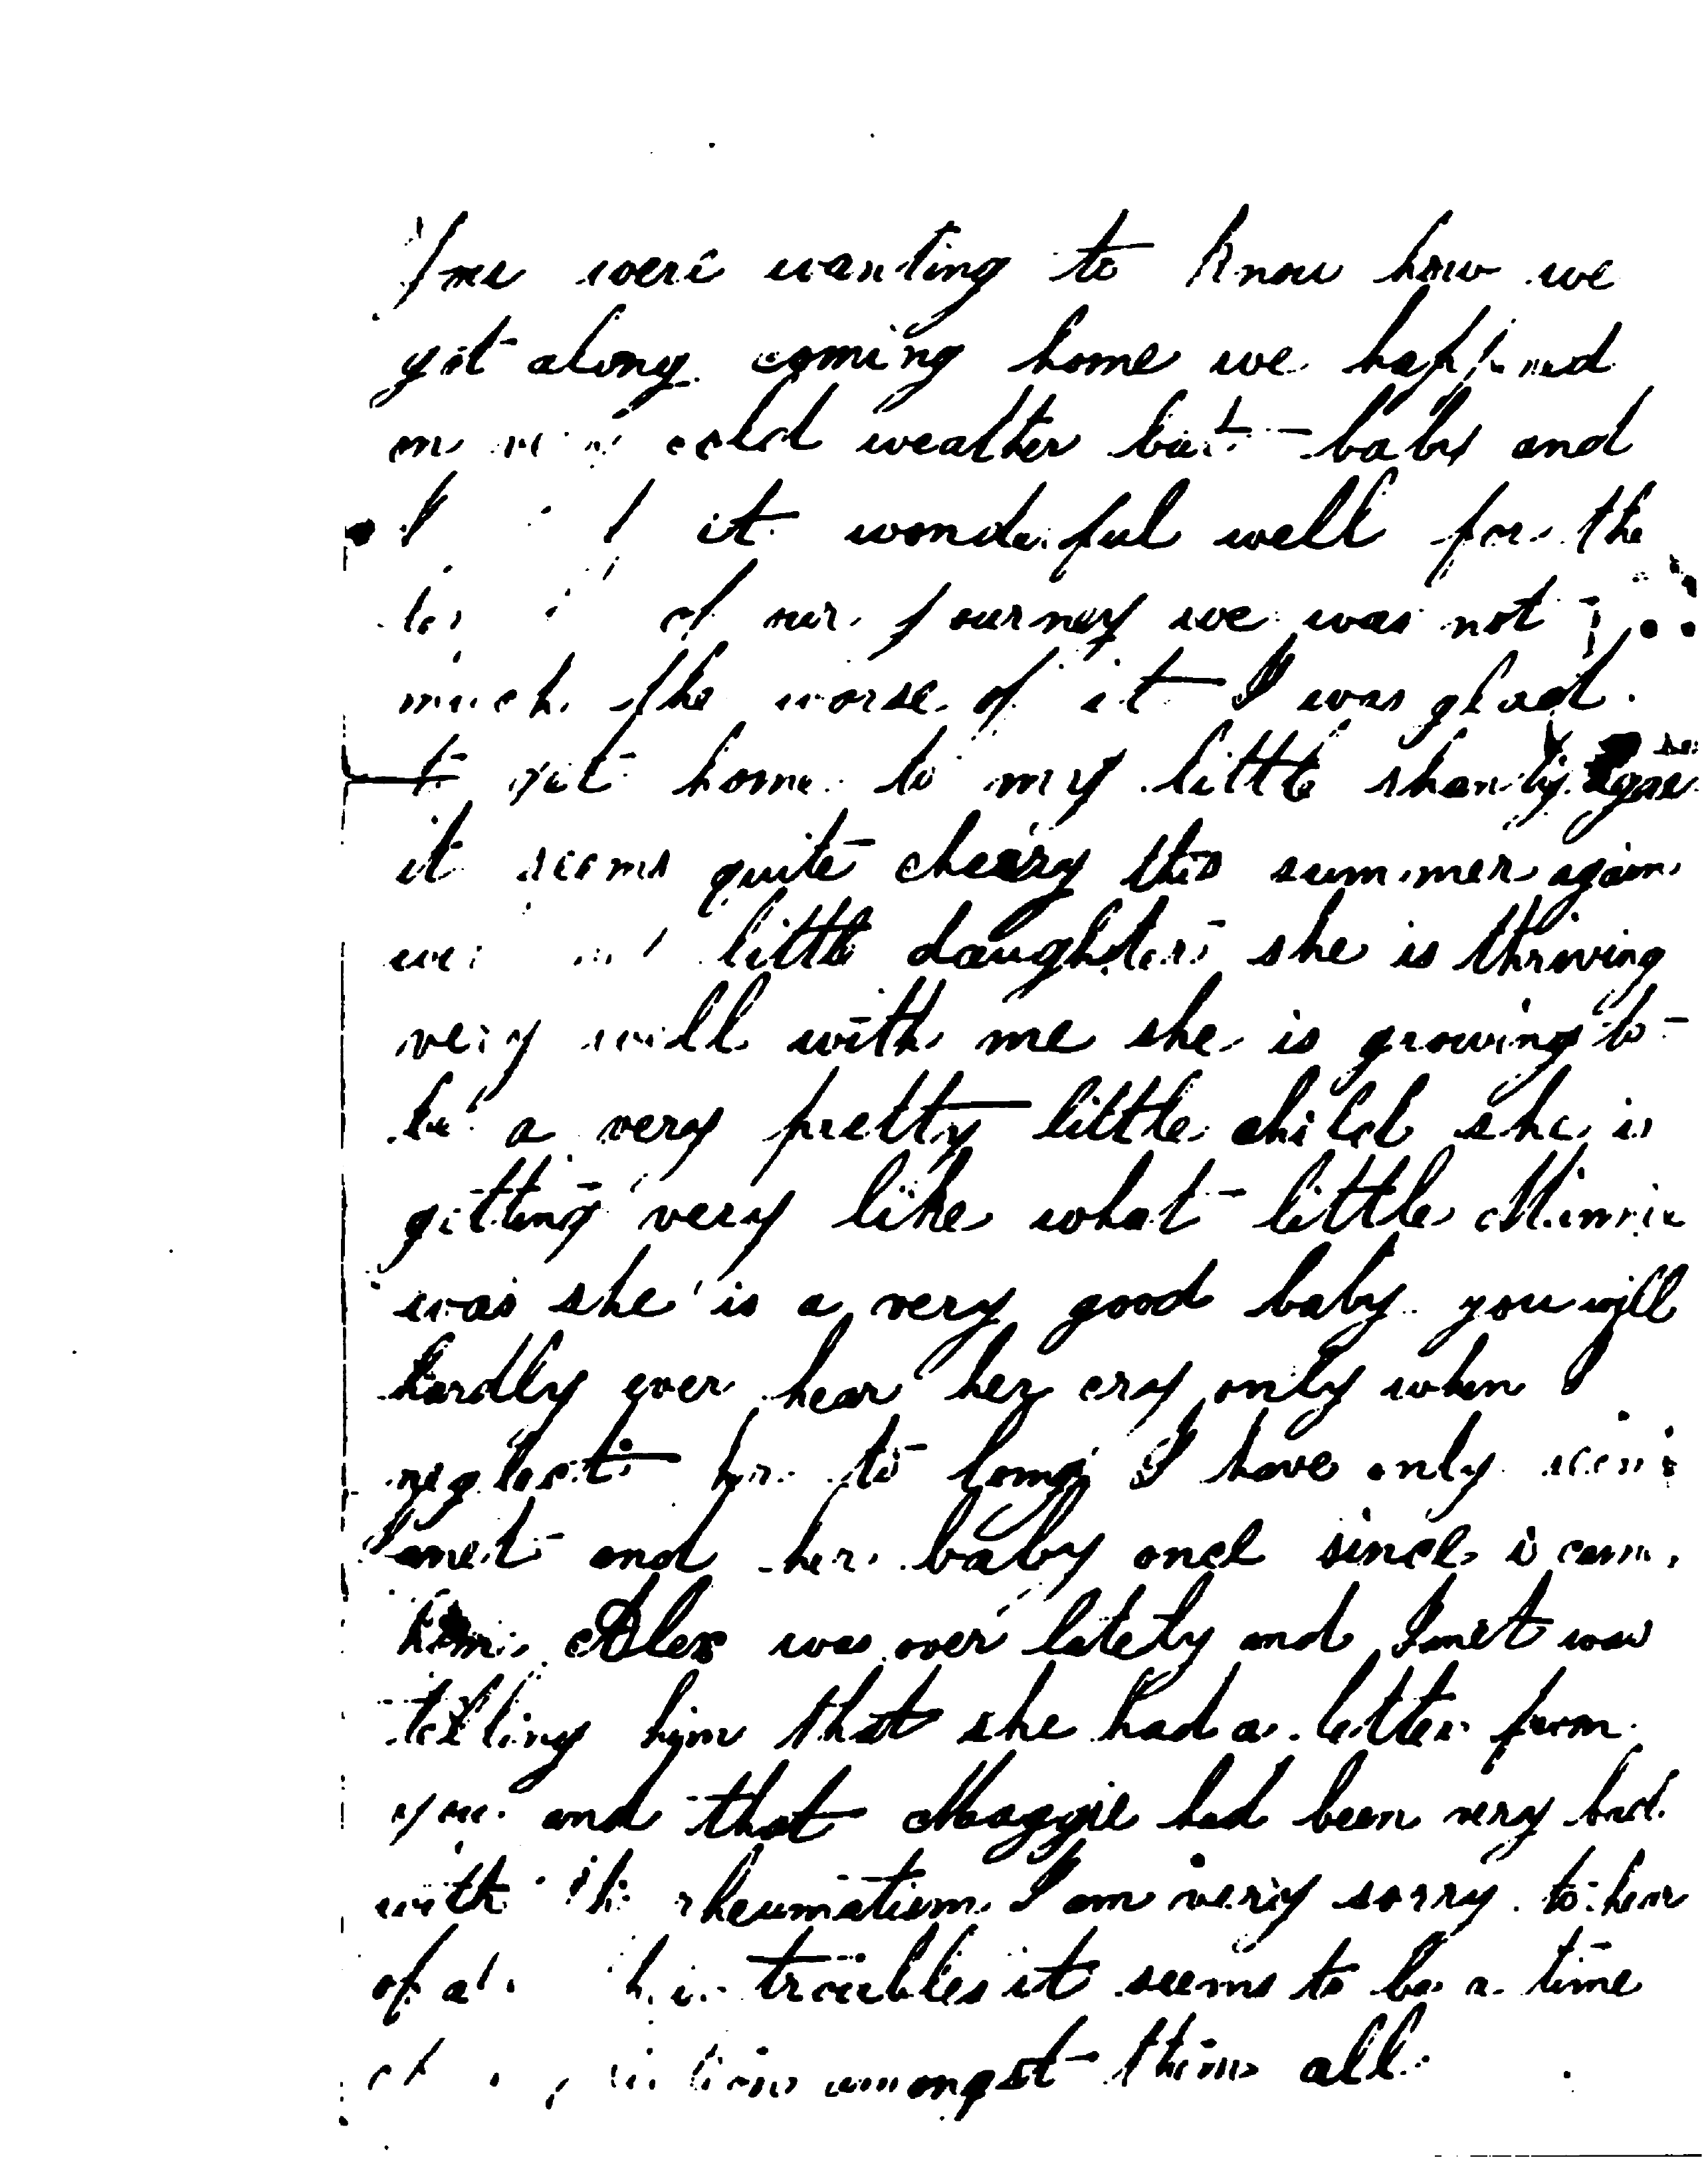 You were wanting to know how we
got along coming home we happned
on very cold weather but baby and
I it wonderful well for the
of our journey we was not
much the worse of it I was glad
to get home to my little shanty
it seems quite cheery this summer again
little daughter she is thriving
very well with me she is growing to
be a very pretty little child she is
getting very like what little Minnie
was she is a very good baby you will
hardly ever hear her cry only when I
neglect her to long I have only seen
Janet and her baby once since i came
home Alex was over lately and Janet was
telling him that she had a letter from
you and that Maggie had been very bad
with the rheumatism I am very sorry to hear
of troubles it seems to be a time
of amongst them all